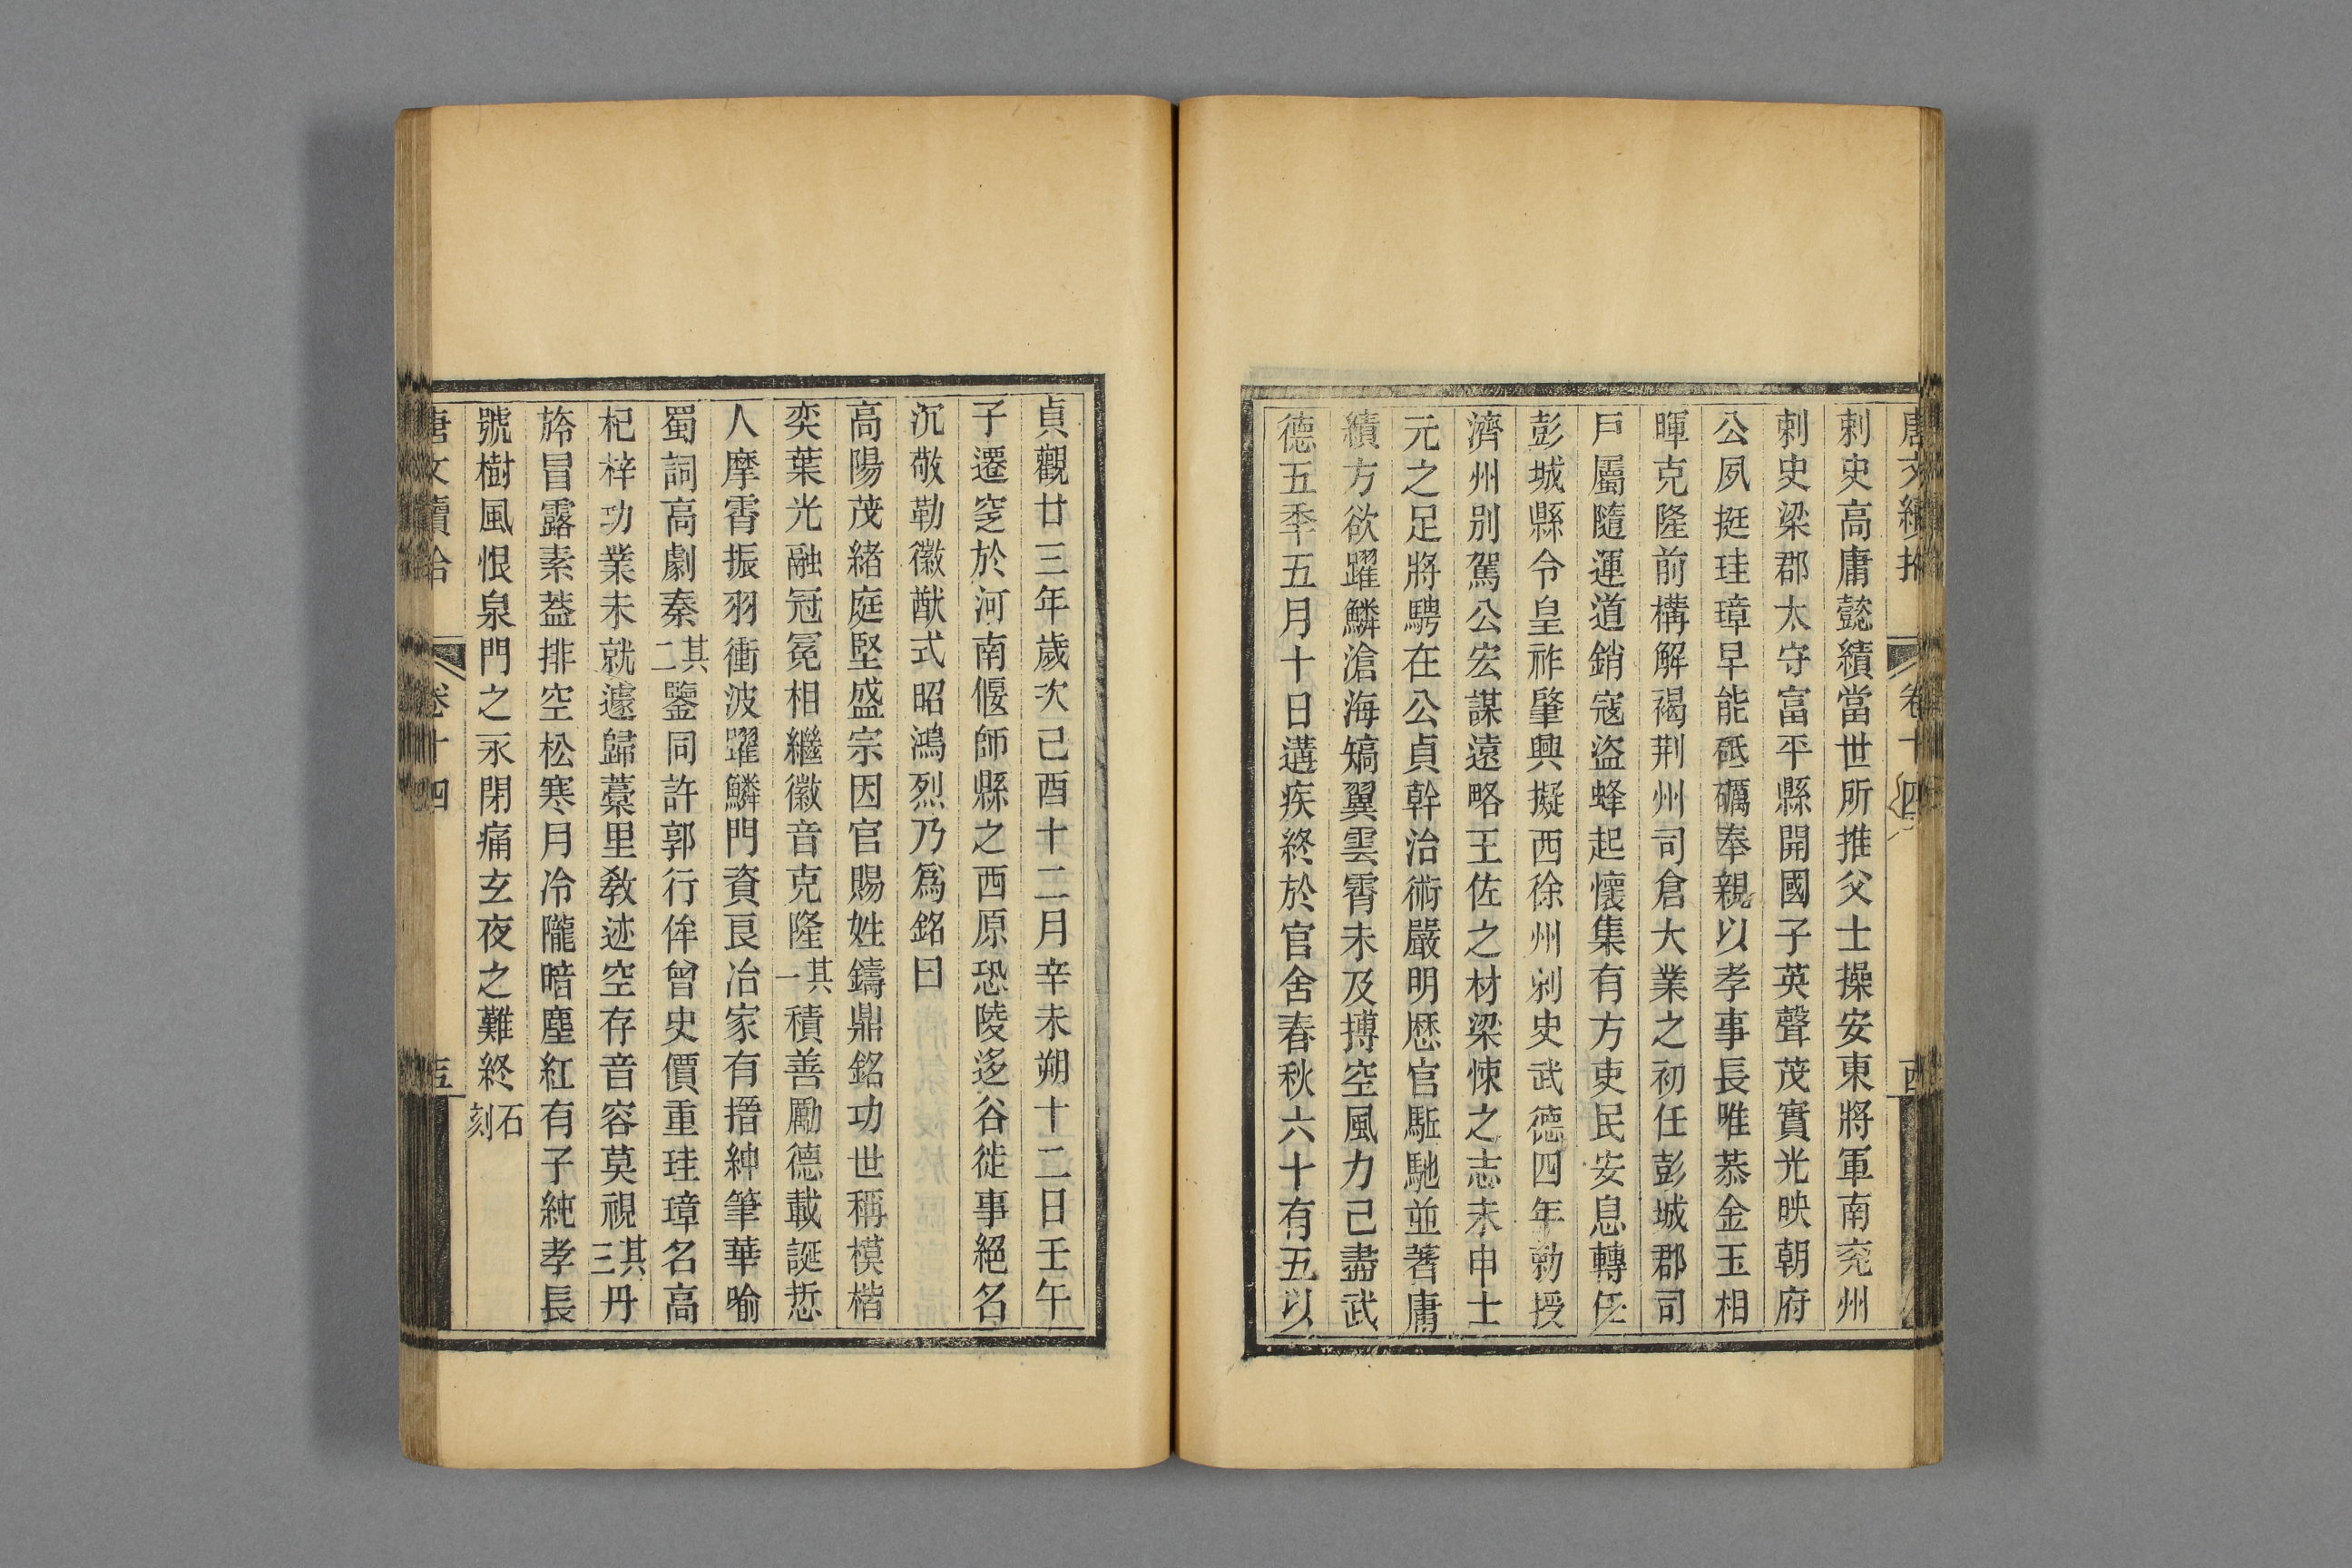 唐文續拾 卷十四 西
刺史高庸懿績當世所推父士操安東將軍南兖州
刺史梁郡太守富平縣開國子英聲茂實光映朝府
公夙挺珪璋早能砥礪奉親以孝事長唯恭金玉相
暉克隆前構解褐荆州司倉大業之初任彭城郡司
戶屬隨運道銷寇盜蜂起懷集有方吏民安息轉任
彭城縣令皇祚肇興擬西徐州刺史武德四年勑授
濟州別駕公宏謀遠略王佐之材梁悚之志未申士
元之足將騁在公貞幹治術嚴明歷官駈馳並著庸
績方欲躍鱗滄海矯翼雲霄未及搏空風力已盡武
德五季五月十日遘疾終於官舍春秋六十有五以
貞觀廿三年歲次己酉十二月辛未朔十二日壬午
子遷窆於河南偃師縣之西原恐陵迻谷徙事絕名
沉敬勒徽猷式昭鴻烈乃爲銘曰
高陽茂緒庭堅盛宗因官賜姓鑄鼎銘功世稱模楷
奕葉光融冠冕相繼徽音克隆其一積善勵德載誕悊
人摩霄振羽衝波躍鱗門資良冶家有搢紳筆華喻
蜀詞高劇秦其二鑒同許郭行侔曾史價重珪璋名高
杞梓功業未就遽歸蒿里教迹空存音容莫視其三丹
旍冒露素葢排空松寒月冷隴暗塵紅有子純孝長
號樹風恨泉門之永閉痛玄夜之難終石刻
唐文續拾 卷十四 五